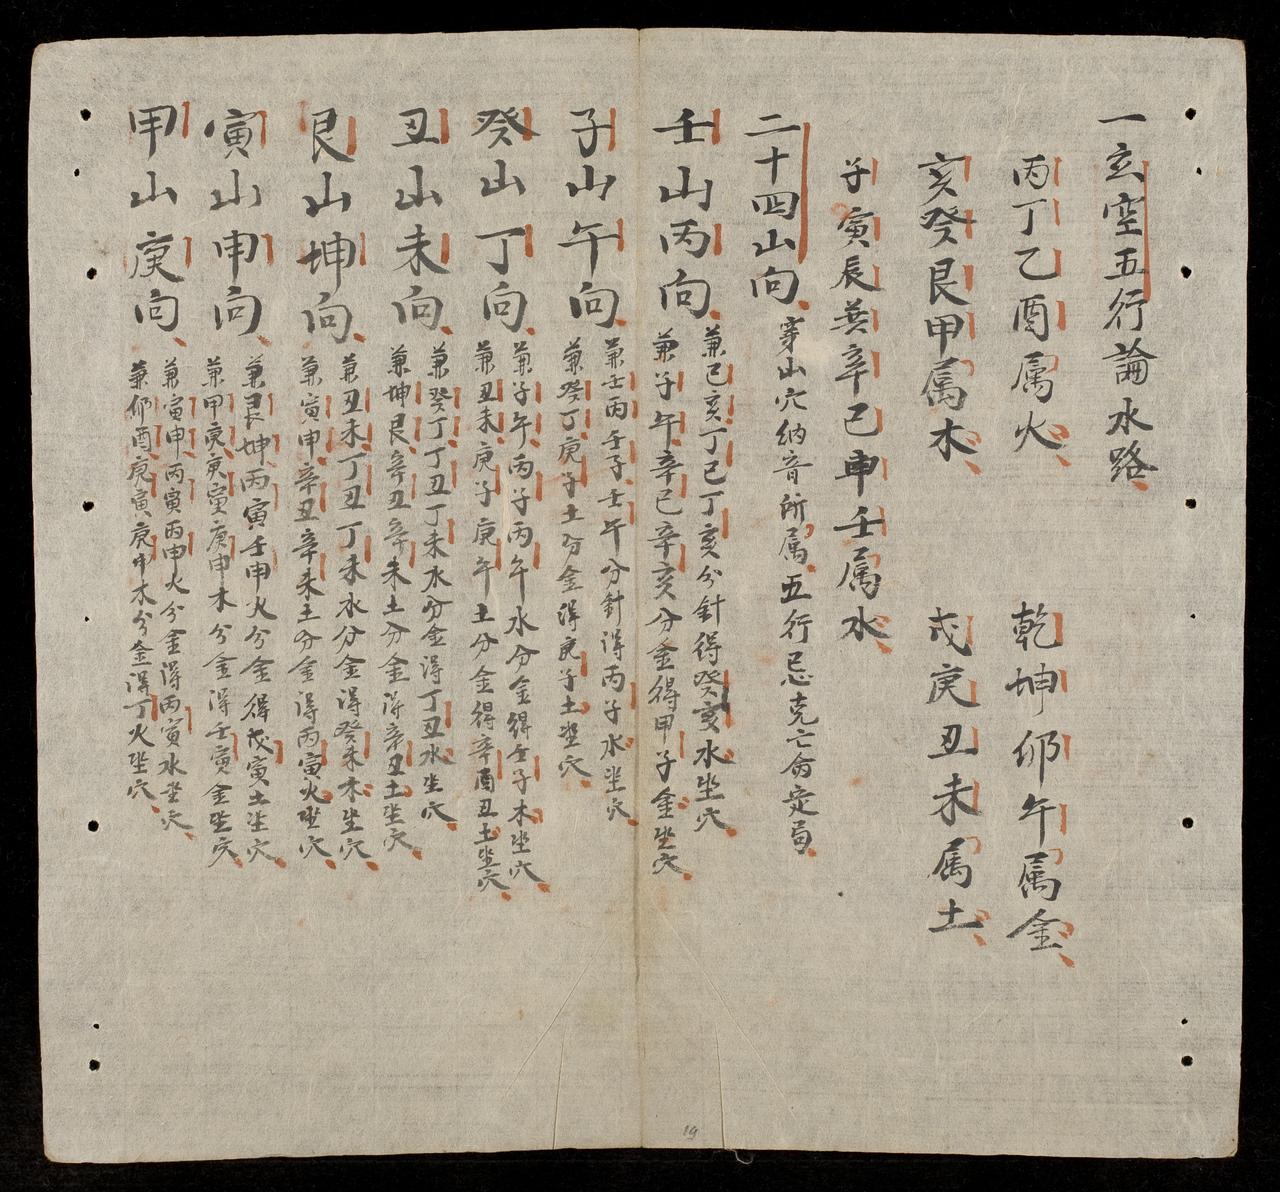 一玄空五行論水路
丙丁乙酉属火　乾坤卯午属金
亥癸艮甲属木　戌庚丑未属土
子寅辰巽辛巳申壬属水
二十四山向　穿山穴納音所属五行忌克亡命定局
壬山丙向
兼巳亥丁巳丁亥分針得癸亥水坐穴
兼子午辛巳辛亥分金得甲子金坐穴
子山午向
兼壬丙壬子壬午分針得丙子水坐穴
兼癸丁庚子土分金得庚子土坐穴
癸山丁向
兼子午丙子丙午水分金得壬子木坐穴
兼丑未庚子庚午土分金得辛酉丑土坐穴
丑山未向
兼癸丁丁丑丁未水分金得丁丑水坐穴
兼坤艮辛丑辛未土分金得辛丑土坐穴
艮山坤向
兼丑未丁丑丁未水分金得癸未木坐穴
兼寅申辛丑辛未土分金得丙寅火坐穴
寅山申向
兼艮坤丙寅壬申火分金得戊寅土坐穴
兼甲庚庚寅庚申木分金得壬寅金坐穴
甲山庚向
兼寅申丙寅丙申火分金得丙寅水坐穴
兼卯酉庚寅庚申木分金得丁火坐穴
19